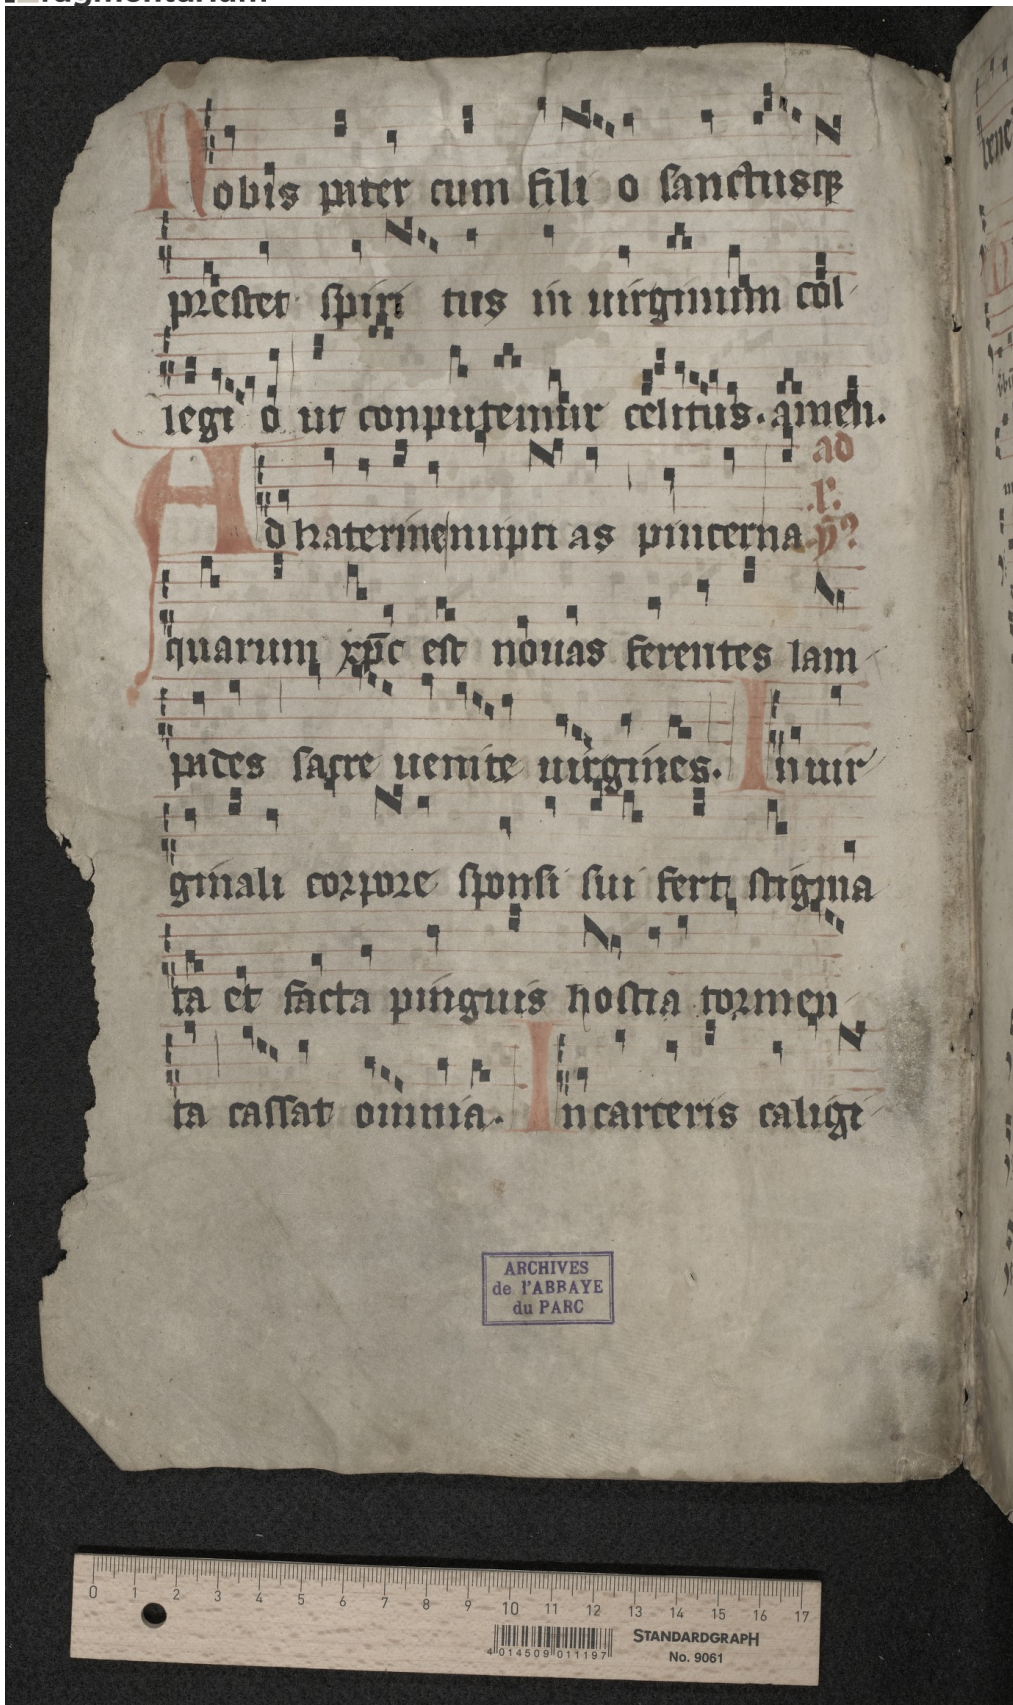 Nobis pater cum fili o sanctusq3
prestet spiri tus in uirginum col
legi o ut conputemur celitus. amen.
ad
Ad katerine nupti as pincerna
quarum xp̄c est nouas ferentes lam
pades sacre uenite uirgines. In uir
ginali corpore sponsi sui fert stigma
ta et facta pinguis hostia tormen
ta cassat omnia. In carceris caligi
ARCHIVES
de l'ABBAYE
du PARC
0 1 2 3 4 5 6 7 8 9 10 11 12 13 14 15 16 17
STANDARDGRAPH
4 014509 011197
No. 9061